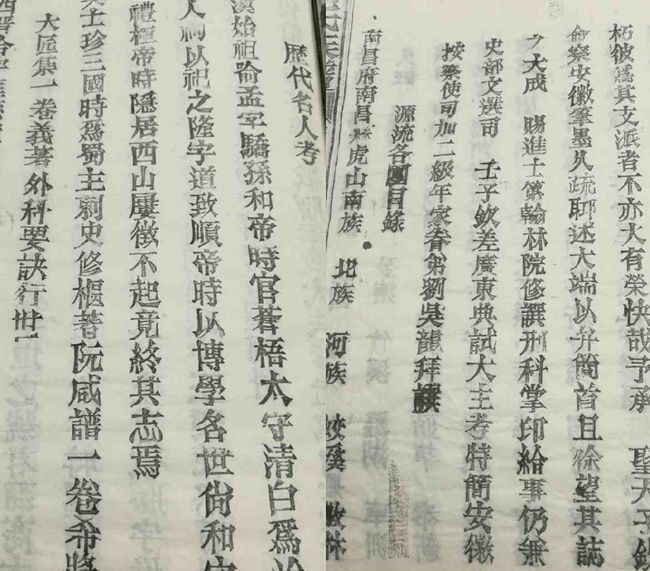 朽彼爲其支派者不亦大有榮快哉予承　聖天子欽
命察安徽筆墨久疏聊述大端以弁簡首且徐望其誌
之大成　賜進士第翰林院修譔刑科掌印給事仍兼
吏部文選司　壬子欽差廣東典試大主考特簡安徽
按察使司加二級年家眷弟劉吳龍拜譔
源流各圖目錄
南昌府南昌縣虎山南族　北族　河族
歷代名人考
漢始祖諭孟字驕孫和帝時官蒼梧太守清白爲
人祠以祀之隆字道致順帝時以博學名世尙和
禮桓帝時隱居西山屢徵不起竟終其志焉
士珍三國時爲蜀主剌史修樞著阮咸譜一卷希
大匠集一卷義著外科要訣行世